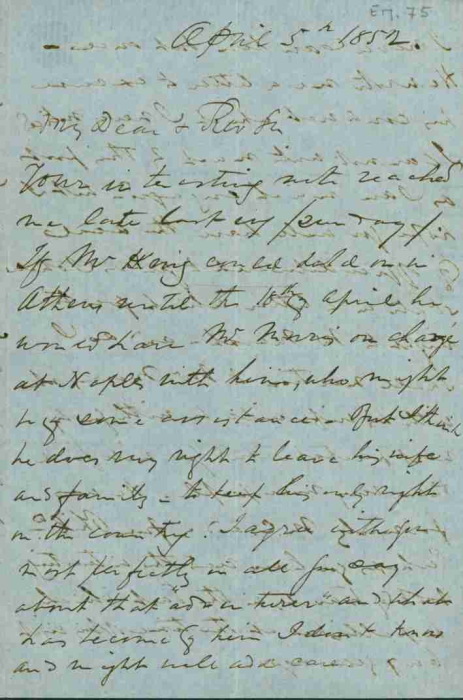 EM. 75
April 5th 1852.
My Dear & Rev Sir
Your interesting note reached
me late last evg (Sunday).
If Mr King could hold on in
Athens until the 18th of April he
would have Mr Morris our chargé
at Naples with him, who might
be of some assistance - But I think
he does very right to leave his wife
and family - to keep his only right
in the country! I agree with you
most perfectly in all you say
about that "adventurer" and what
has become of him I don't know
and might well add care